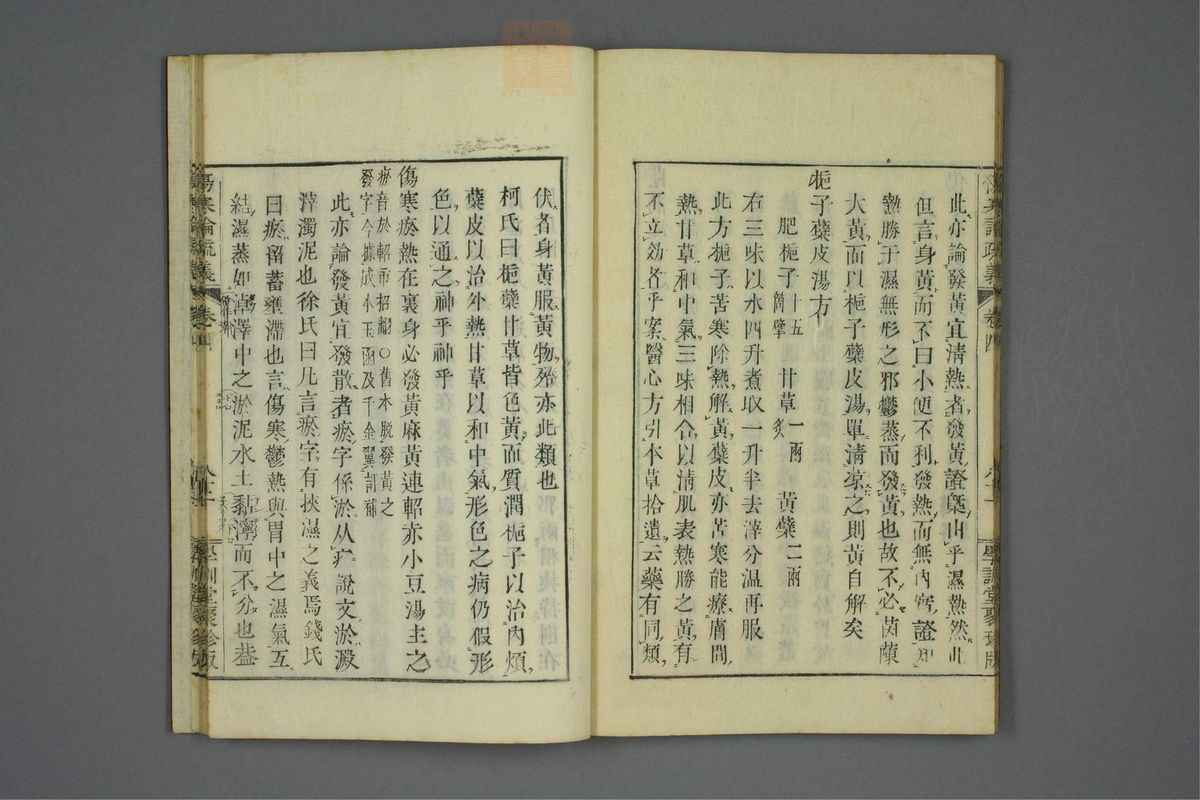 此亦論發黃宜淸熱者發黃證槀出乎濕熱然此
但言身黃而不曰小便不利發熱而無內實證知
熱勝于濕無形之邪鬱蒸而發黃也故不必茵蔯
大黃而以梔子蘗皮湯單淸涼之則黃自解矣
梔子蘗皮湯方
肥梔子十五箇擘 甘草一兩炙 黃蘗二兩
右三味以水四升煮取一升半去滓分溫再服
此方梔子苦寒除熱解黃蘗皮亦苦寒能療膚間
熱甘草和中氣三味相合以淸肌表熱勝之黃有
不立効者乎案醫心方引本草拾遺云藥有同類
伏者身黃服黃物殆亦此類也
柯氏曰梔蘗甘草皆色黃而質潤梔子以治內煩
蘗皮以治外熱甘草以和中氣形色之病仍假形
色以通之神乎神乎
傷寒瘀熱在裏身必發黃麻黃連軺赤小豆湯主之
瘀音於軺市招翻○舊本脫發黃之
發字今據成本玉函及千金翼訂補
此亦論發黃宜發散者瘀字係淤从疒說文淤澱
滓濁泥也徐氏曰凡言瘀字有挾濕之義焉錢氏
曰瘀留蓄壅滯也言傷寒鬱熱與胃中之濕氣互
結濕蒸如淖澤中之淤泥水土黏濘而不分也盖
傷寒論疏義
卷四
學訓堂聚珍版